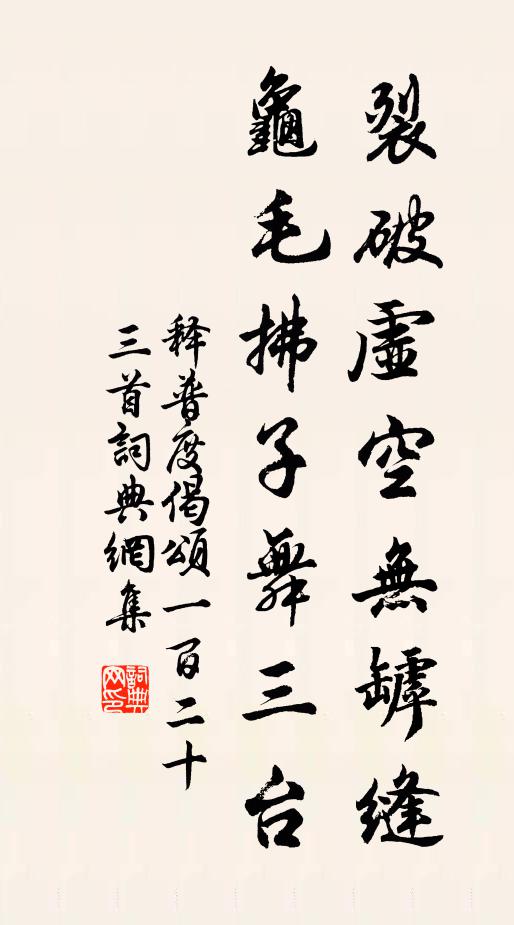 裂破虛空無罅縫
龜毛拂子舞三台
释普度偈頌一百二十
三首詞典網集
詞典
网印